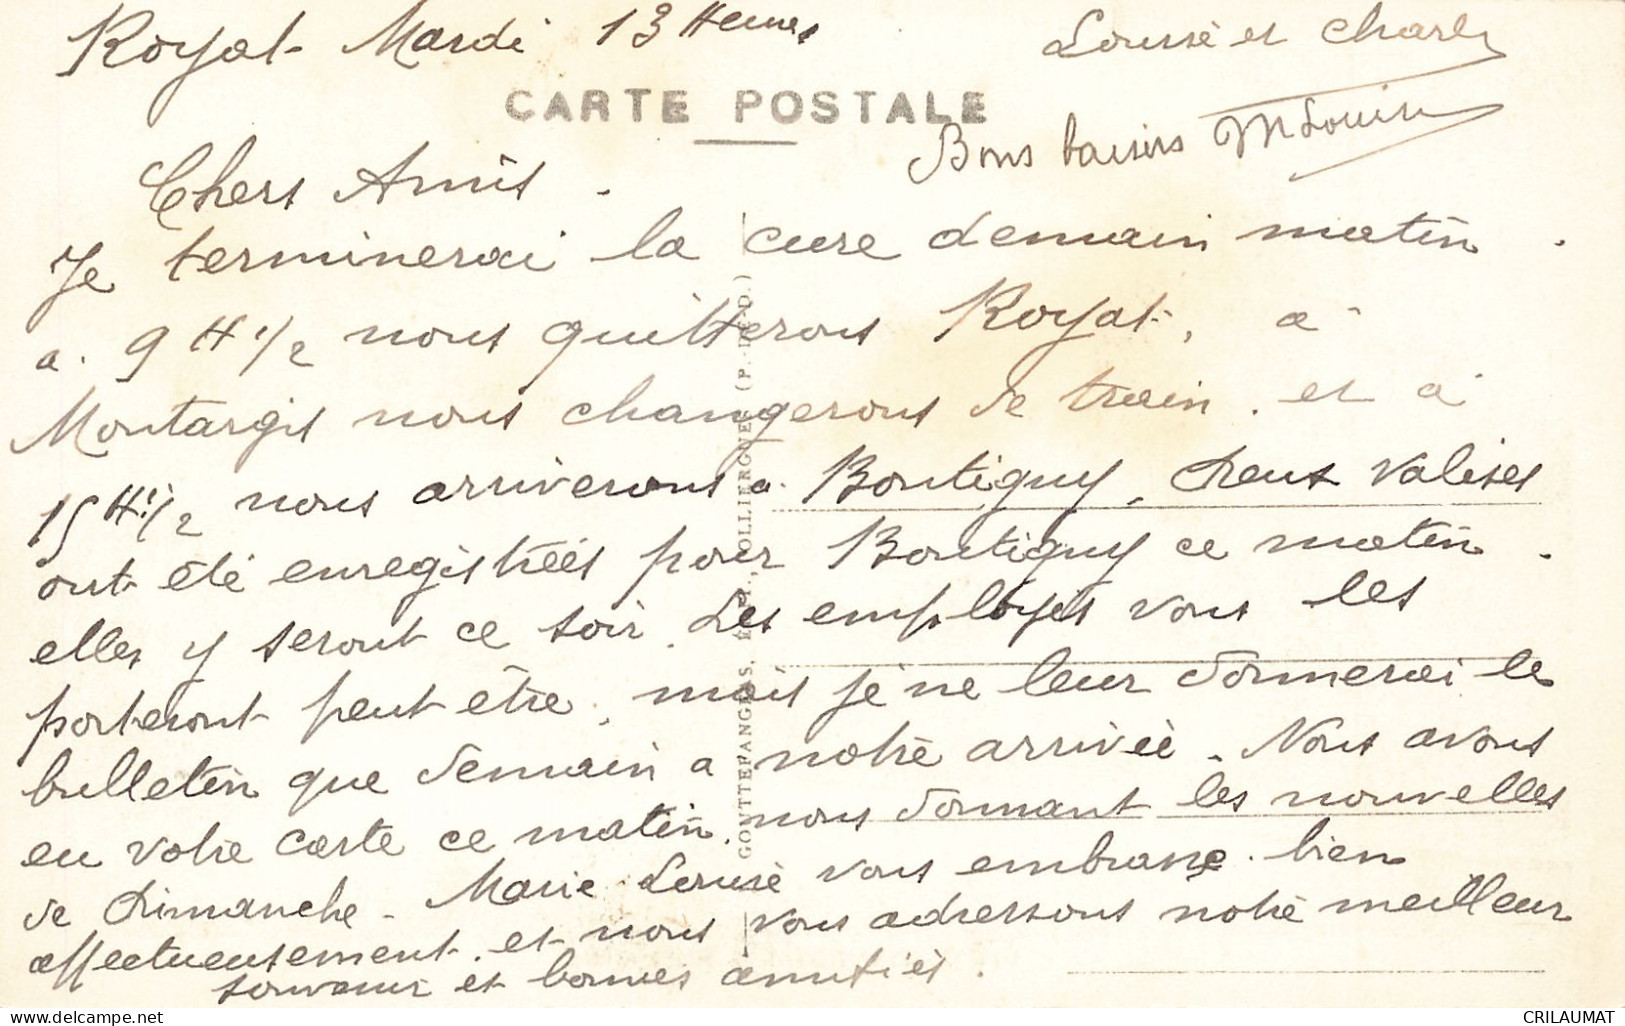 Royat - Mardi 13 Heures
Louise et Charles
CARTE POSTALE
Bons baisers M Louise
Chers Amis -
Je terminerai la cure demain matin .
a. 9 H 1/2 nous quitterons Royat, a
Montargis nous changerons de train . et a
15 H 1/2 nous arriverons a. Boutigny. Deux valises
ont été enregistrées pour Boutigny ce matin .
elles y seront ce soir. Les employés vous les
porteront peut être, mais je ne leur donnerai le
bulletin que demain a notre arrivée. Nous avons
eu votre carte ce matin, nous donnant les nouvelles
de Dimanche - Marie Louise vous embrasse . bien
affectueusement . et nous vous adressons notre meilleur
souvenir et bonnes amitiés .
GOUTTEFANGEAS, ÉDIT., OLLIERGUES (P.-DE-D.)
delcampe.net
CRILAUMAT